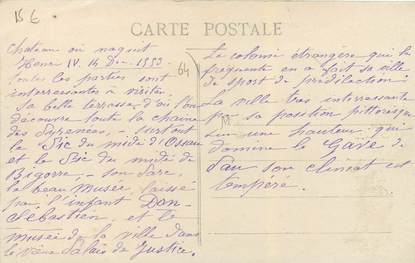 15 €
CARTE POSTALE
64
Chateau où naquit
Henri IV. 14 Dec 1553
toutes les parties sont
interressantes à visiter
Sa belle terrasse d'où l'on
découvre toute la chaine
des Pyrénées, surtout
le Pic du midi d'Ossau
et le Pic du midi de
Bigorre, son parc,
le beau Musée, laissé
par l'infant Don
Sébastien, et le
musée de la ville dans
le Palais de Justice.
La colonie étrangère qui la
fréquente en a fait sa ville
de sport de prédilection.
La ville tres interressante
par sa position pittoresque
sur une hauteur qui
domine le Gave de
Pau son climat est
tempéré.